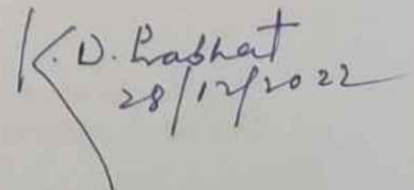 K. D. Prabhat
28/12/2022